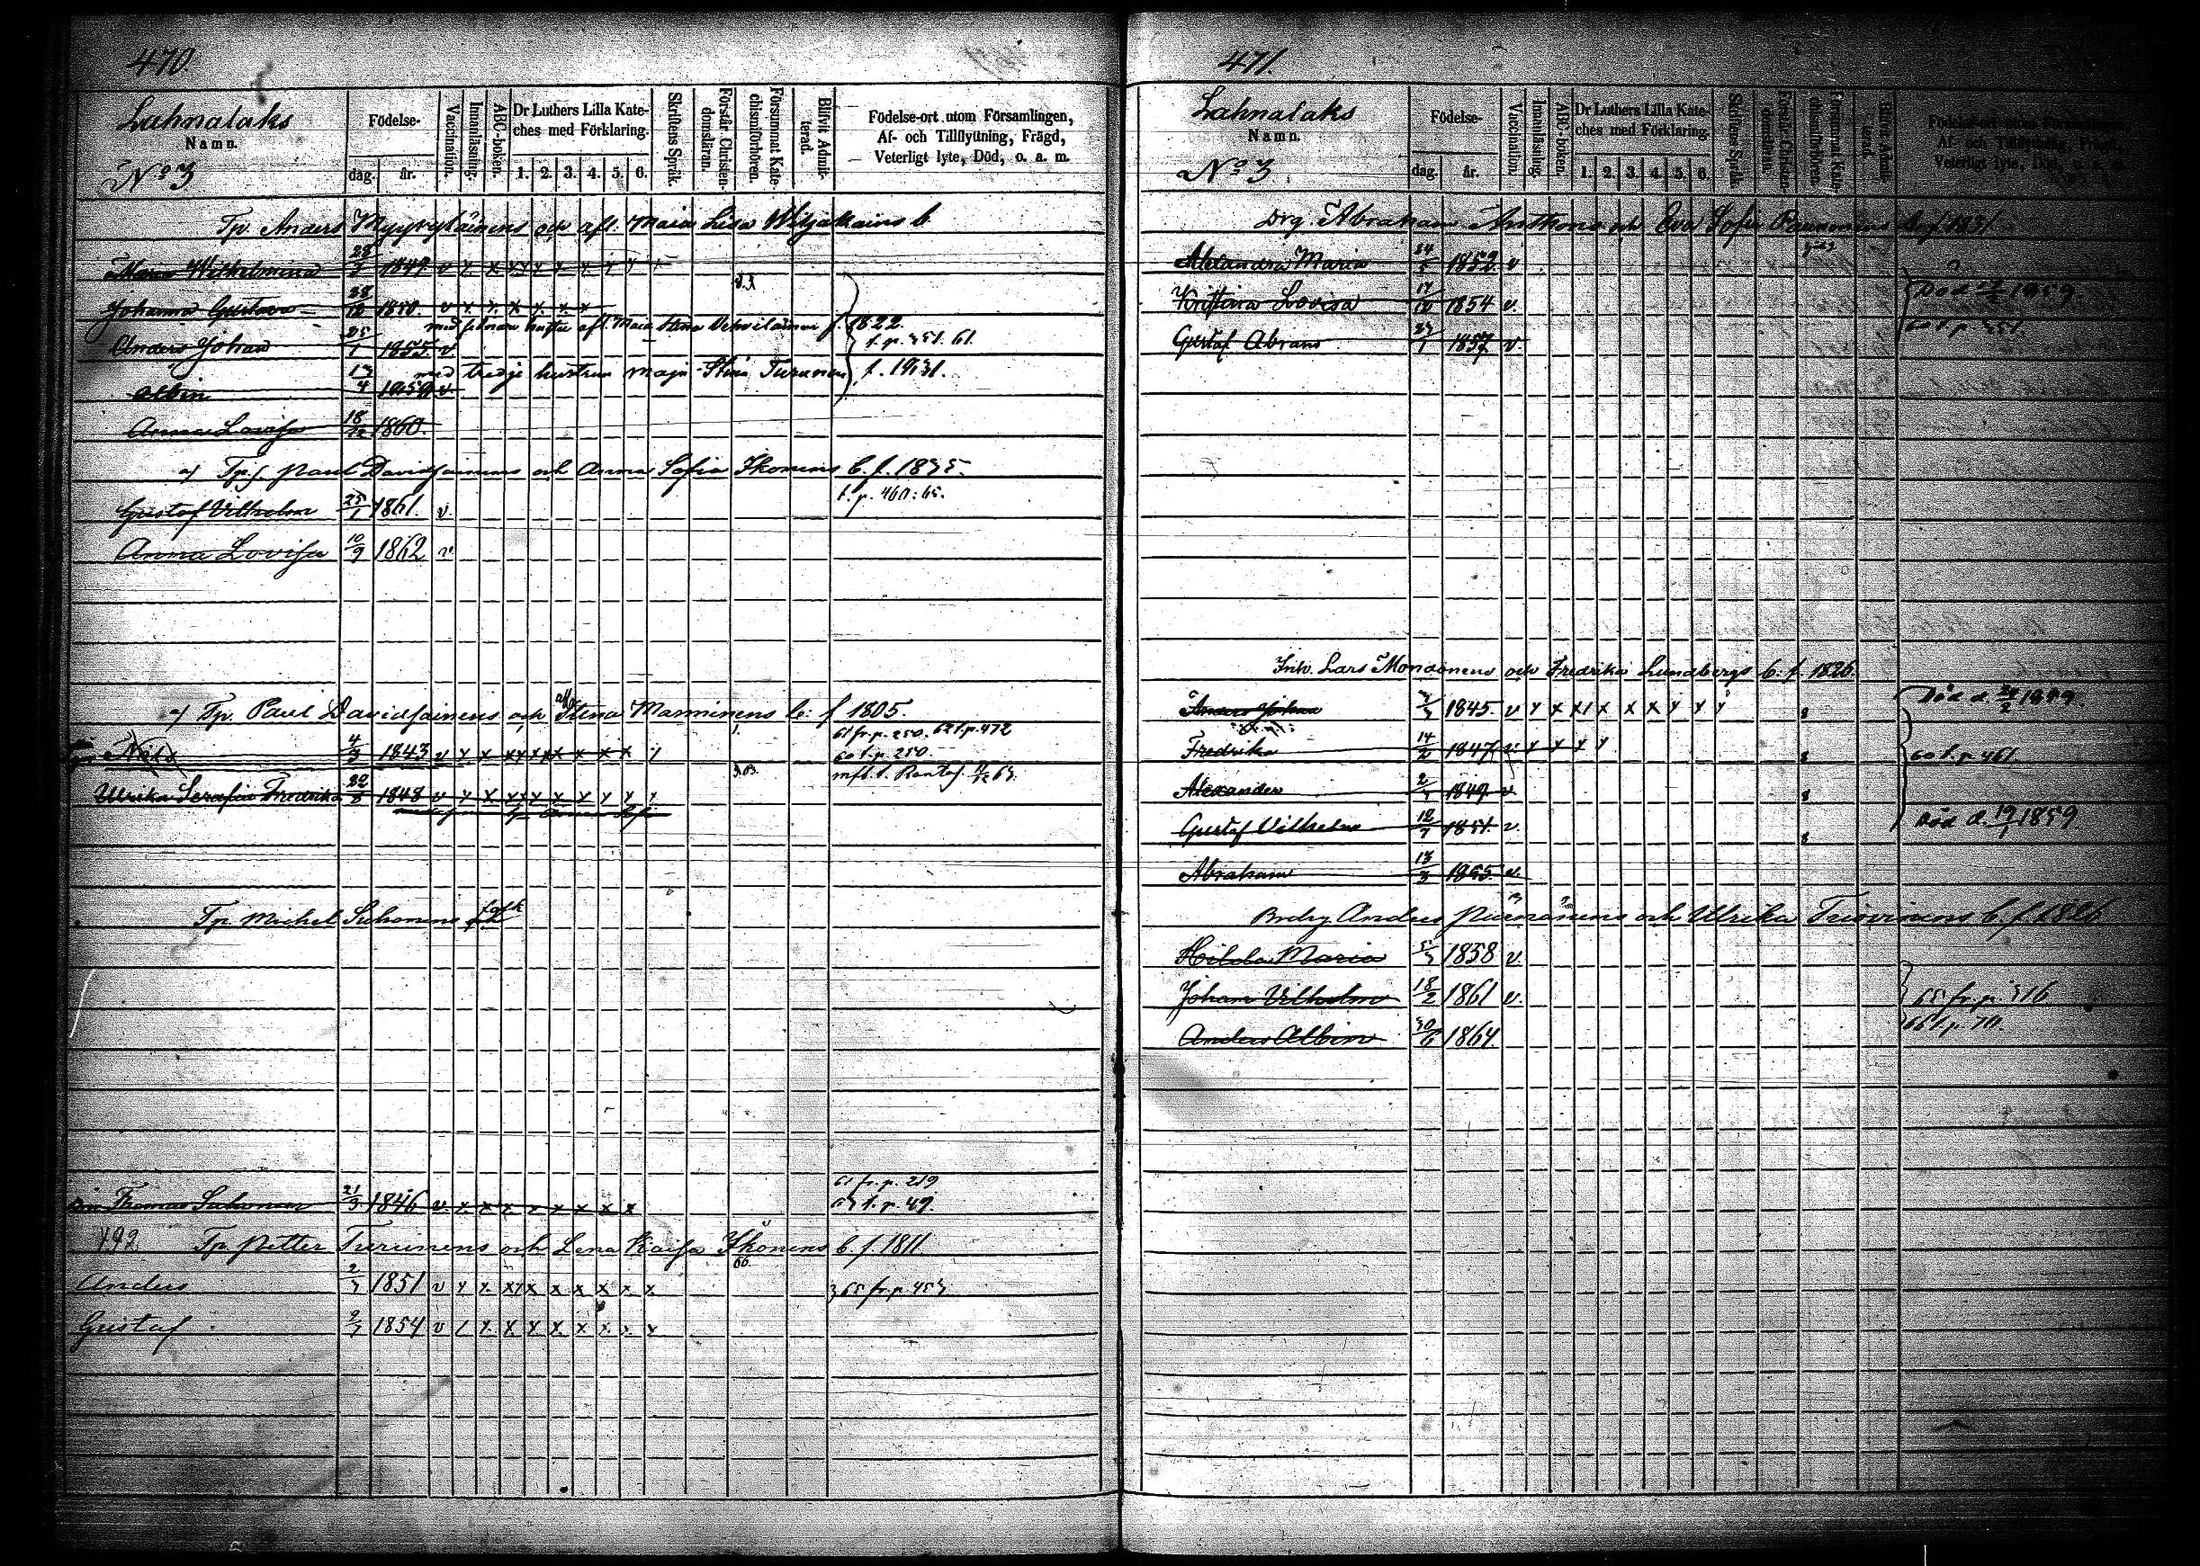 470.
Lahnalaks
Namn.
No 3
Födelse-
dag.
år.
Vaccination.
Innanläsning.
ABC-boken.
Dr Luthers Lilla Kate-
ches med Förklaring.
1. 2. 3. 4. 5. 6.
Skriftens Språk.
Förstår Christen-
domsläran.
Försummat Kate-
chismiförhören.
Blifvit Admit-
terad.
Födelse-ort utom Församlingen,
Af- och Tillflyttning, Frägd,
Veterligt lyte, Död, o. a. m.
Tp. Anders och afl. Maia Lisa b.
Maria Wilhelmina 1847 v
Johanna Gustava 28/12 1850. v
med hustru afl. Maia Stina f. 1822.
Anders Johan 25/1 1855. v t. p. 351. 61.
med tredje hustrun Maja Stina Turunen f. 1831.
Albin 13/4 1859 v.
Anna Lovisa 18/12 1860.
Tp. s. Paul Davidsainens och Anna Sofia Ikonens b. f. 1835.
Gustaf Vilhelm 25/1 1861. v. t. p. 460: 65.
Anna Lovisa 10/9 1862 v.
Tp. Paul Davidsainens och afl. Stina Manninens b: f 1805.
61 fr. p. 250. 62 t. p. 472
4/9 1843 v x x x x x x x x x 60 t. p. 250.
Ulrika Serafia Fredrika 22/8 1848 v x x x x x x x x x
Tp Michel Suhonens
Thomas Suhonen 21/9 1846 v. x x x x x x x x 61 fr. p. 219
63 t. p. 49.
492 Tp Petter Turunens och Lena Kaisa Ikonens b. f. 1811
66.
Anders 2/3 1851 v x x x x x x x x x 65 fr. p. 453
Gustaf 1854 v x x x x x x x x x
471.
Lahnalaks
Namn.
No 3
Födelse-
dag.
år.
Vaccination.
Innanläsning.
ABC-boken.
Dr Luthers Lilla Kate-
ches med Förklaring.
1. 2. 3. 4. 5. 6.
Skriftens Språk.
Förstår Christen-
domsläran.
Försummat Kate-
chismiförhören.
Blifvit Admit-
terad.
Födelse-ort utom Församlingen,
Af- och Tillflyttning, Frägd,
Veterligt lyte, Död, o. a. m.
Drg. Abraham Anthons och Eva Sofia b. f. 1831.
Alexandra Maria 24/5 1852 v
Kristina Lovisa 17/12 1854 v. Död 1859
Gustaf Abram 1857 v. 60 t. p. 351
Inh. Lars Mononens och Fredrika Lundbergs b: f. 1826.
Anders Johan 1845. v x x x x x x x x x Död d.
Fredrika 14/2 1847 v x x x x 60 t. p. 461
Alexander 1849. v
Gustaf Vilhelm 12/7 1851. v. Död d. 19/1 1859
Abraham 13/3 1855 v.
Bndrg Anders och Ulrika b. f. 1826
Hilda Maria 5/3 1858 v.
Johan Vilhelm 18/2 1861 v. 65 fr. p. 316
Anders Albin 30/6 1864 66 t. p. 70.